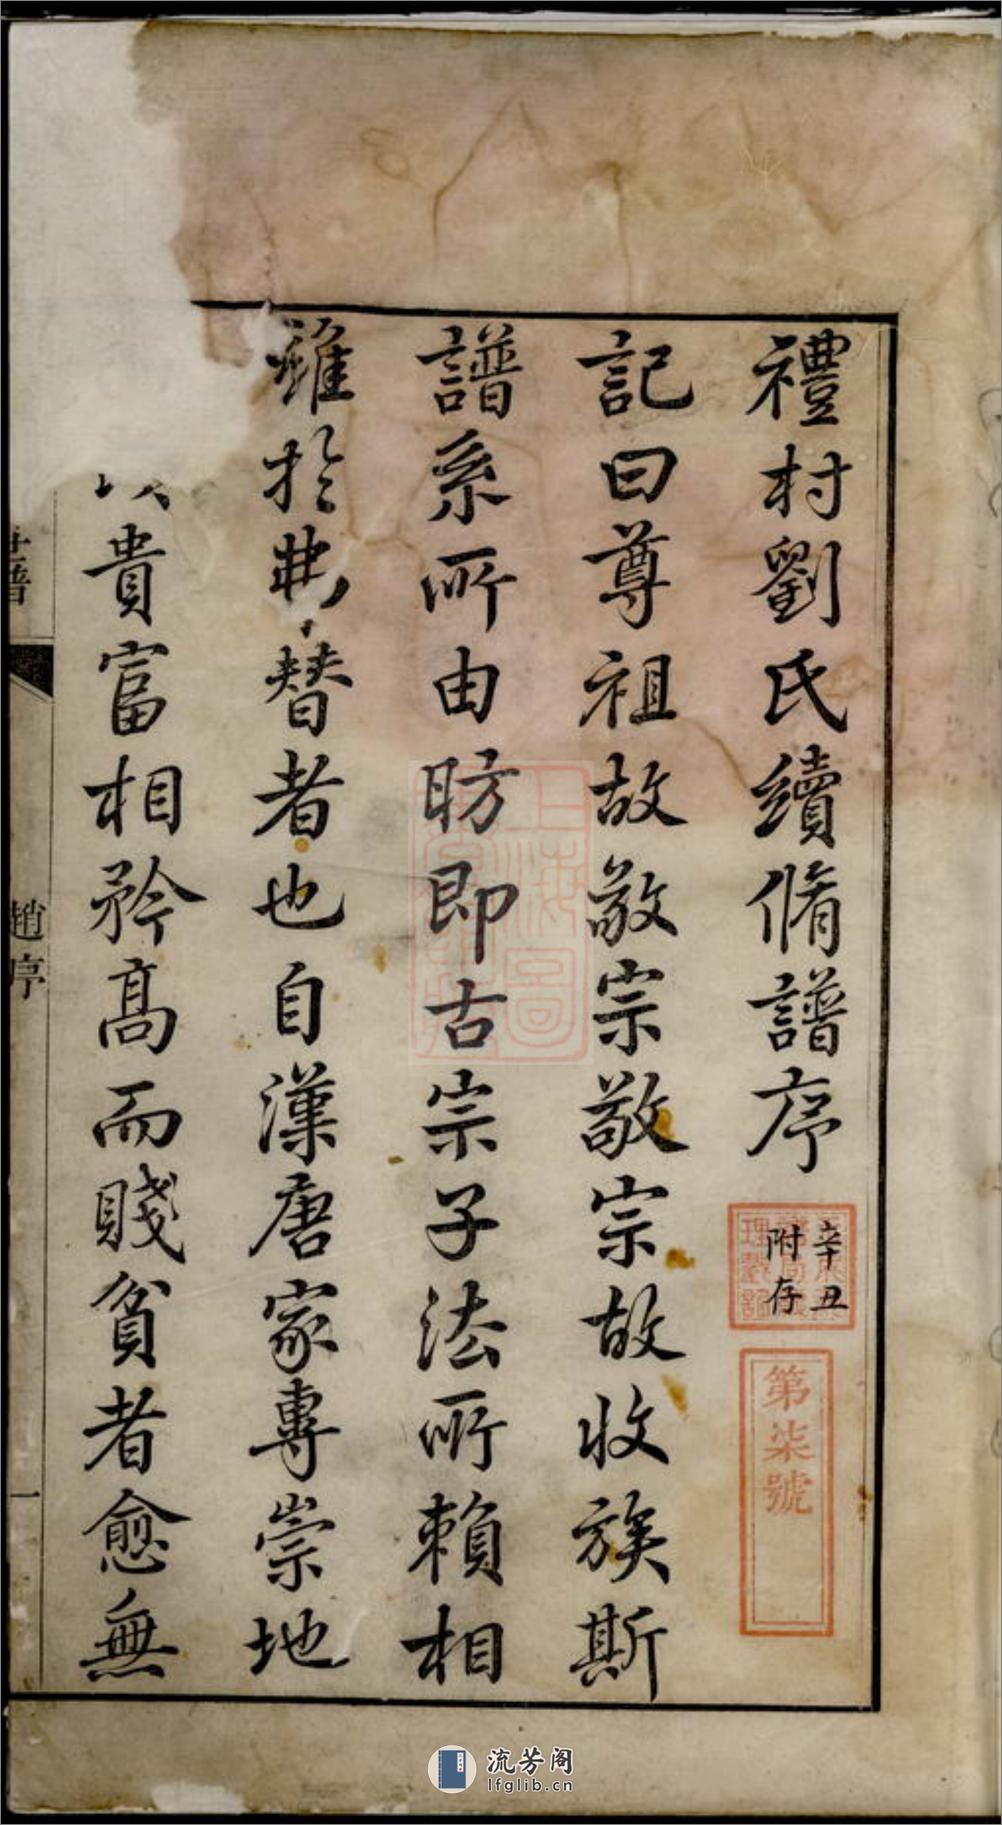 禮村劉氏續脩譜序
記曰尊祖故敬宗敬宗故收族斯
譜系所由昉即古宗子法所賴相
維於弗替者也自漢唐家專崇地
貴富相矜高而賤貧者愈無
辛丑
附存
第柒號
譜
趙序
一
流芳阁
lfglib.cn